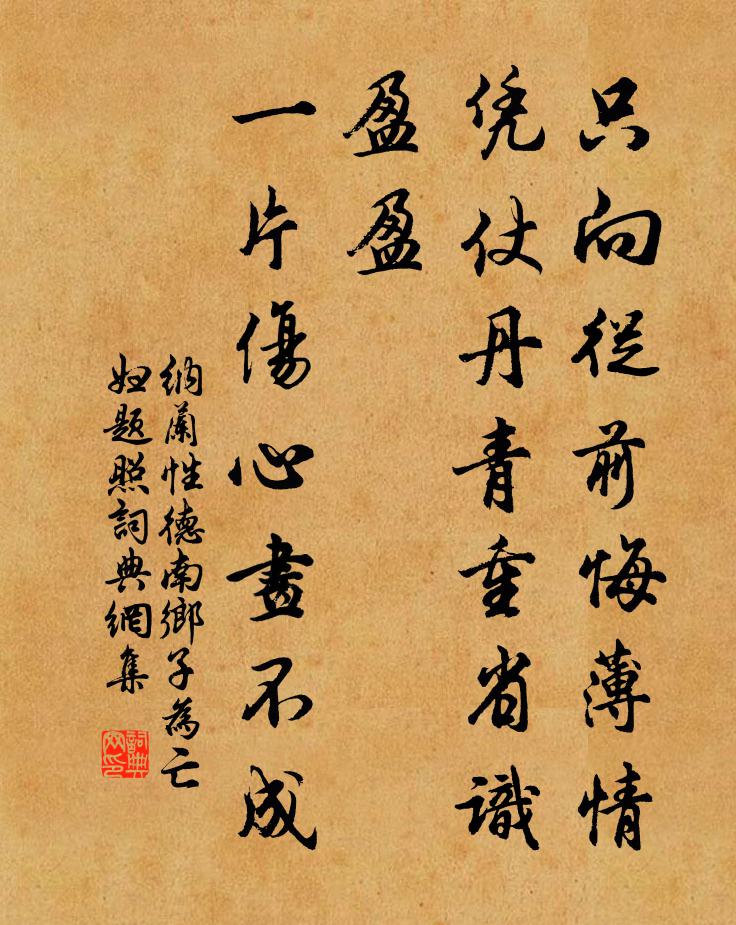 只向從前悔薄情
凭仗丹青重省識
盈盈
一片傷心畫不成
納蘭性德南鄉子為亡
婦題照詞典網集
詞典網印